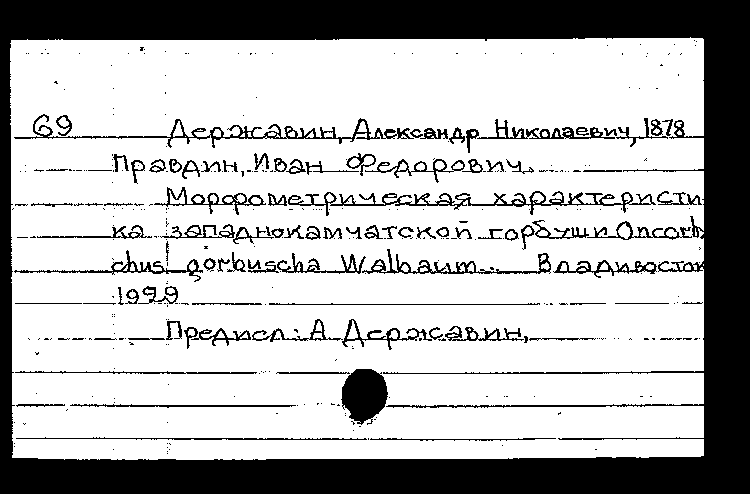 69 Державин, Александр Николаевич, 1878
Правдин, Иван Федорович.
Морфометрическая характеристи
ка западнокамчатской горбуши Oncorhy
chus gorbuscha Walbaum. Владивосток
1929
Предисл: А Державин,